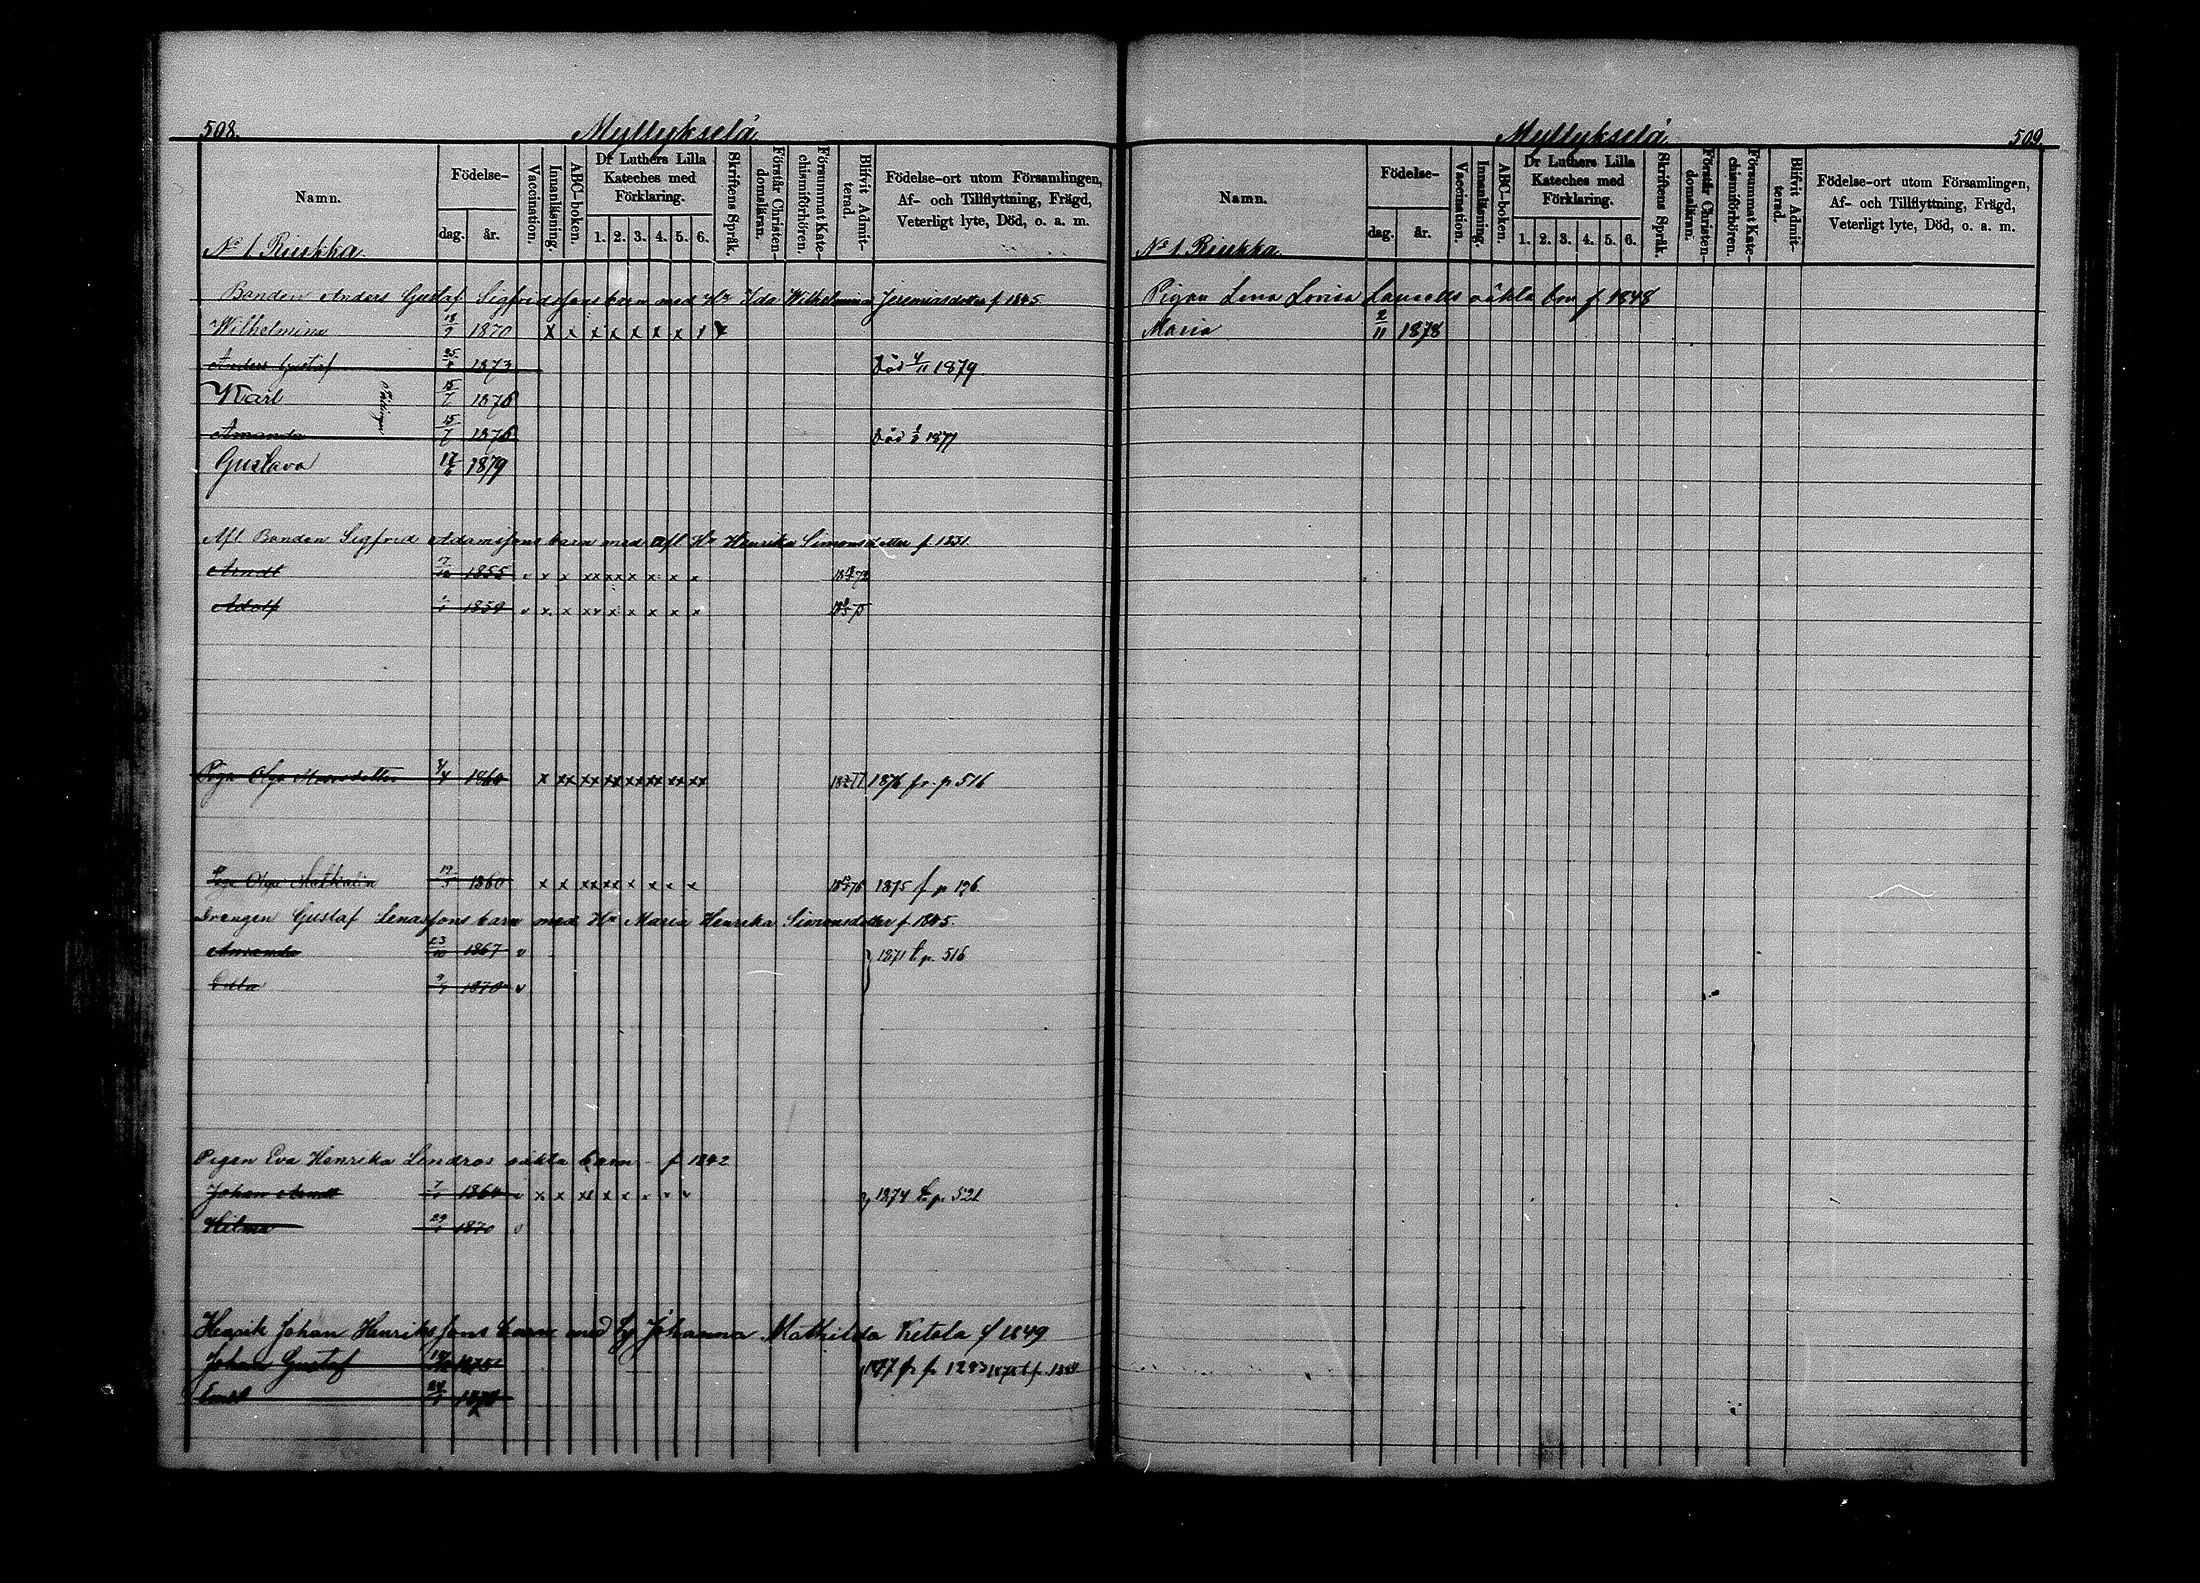 508.
Myllykselä
Namn.
Födelse-
dag.
år.
Vaccination.
Innanläsning.
ABC-boken.
Dr Luthers Lilla
Kateches med
Förklaring.
1. 2. 3. 4. 5. 6.
Skriftens Språk.
Förstår Christen-
domsläran.
Försummat Kate-
chismiförhören.
Blifvit Admit-
terad.
Födelse-ort utom Församlingen,
Af- och Tillflyttning, Frägd,
Veterligt lyte, Död, o. a. m.
No 1 Riukka.
Bonden Anders Gustaf Sigfridssons barn med Hu Ida Wilhelmina Jeremiasdotter f 1845.
Wilhelmina 18/9 1870 x x x x x x x x
Anders Gustaf 1873 Död 4/11 1879
Karl 15/7 1876
Amanda 15/7 1876 Död 1877
Gustava 1879
Afl. Bonden Sigfrid Adamssons barn med afl Hu Henrika Simonsdotter f. 1831.
Arndt 1855 v x x xx xx x x x x
Adolf 1859 v x x xx x x x x x
Piga Olga 1860 x xx xx xx xx xx xx xx 1876 fr. p 516
Olga Mathilda 19/5 1860 x x xx xx x x x x 1875 f p 126
Drengen Gustaf Lenassons barn med Hu Maria Henrika Simonsdotter f. 1845.
Amanda 1867 v 1871 t. p. 516
Edla 1870 v
Pigan Eva Henrika Lindros oäkta barn f 1842
Johan Arndt 1864 1874 t. p. 521
Hilma 29 1870 v
Henrik Johan Henrikssons barn med Johanna Mathilda Ketola f 1849
Johan Gustaf 1877 fr p 1283
Emil
509.
Myllykselä
Namn.
Födelse-
dag.
år.
Vaccination.
Innanläsning.
ABC-boken.
Dr Luthers Lilla
Kateches med
Förklaring.
1. 2. 3. 4. 5. 6.
Skriftens Språk.
Förstår Christen-
domsläran.
Försummat Kate-
chismiförhören.
Blifvit Admit-
terad.
Födelse-ort utom Församlingen,
Af- och Tillflyttning, Frägd,
Veterligt lyte, Död, o. a. m.
No 1 Riukka.
Pigan Lena Lovisa oäkta f 1848
Maria 2/11 1878